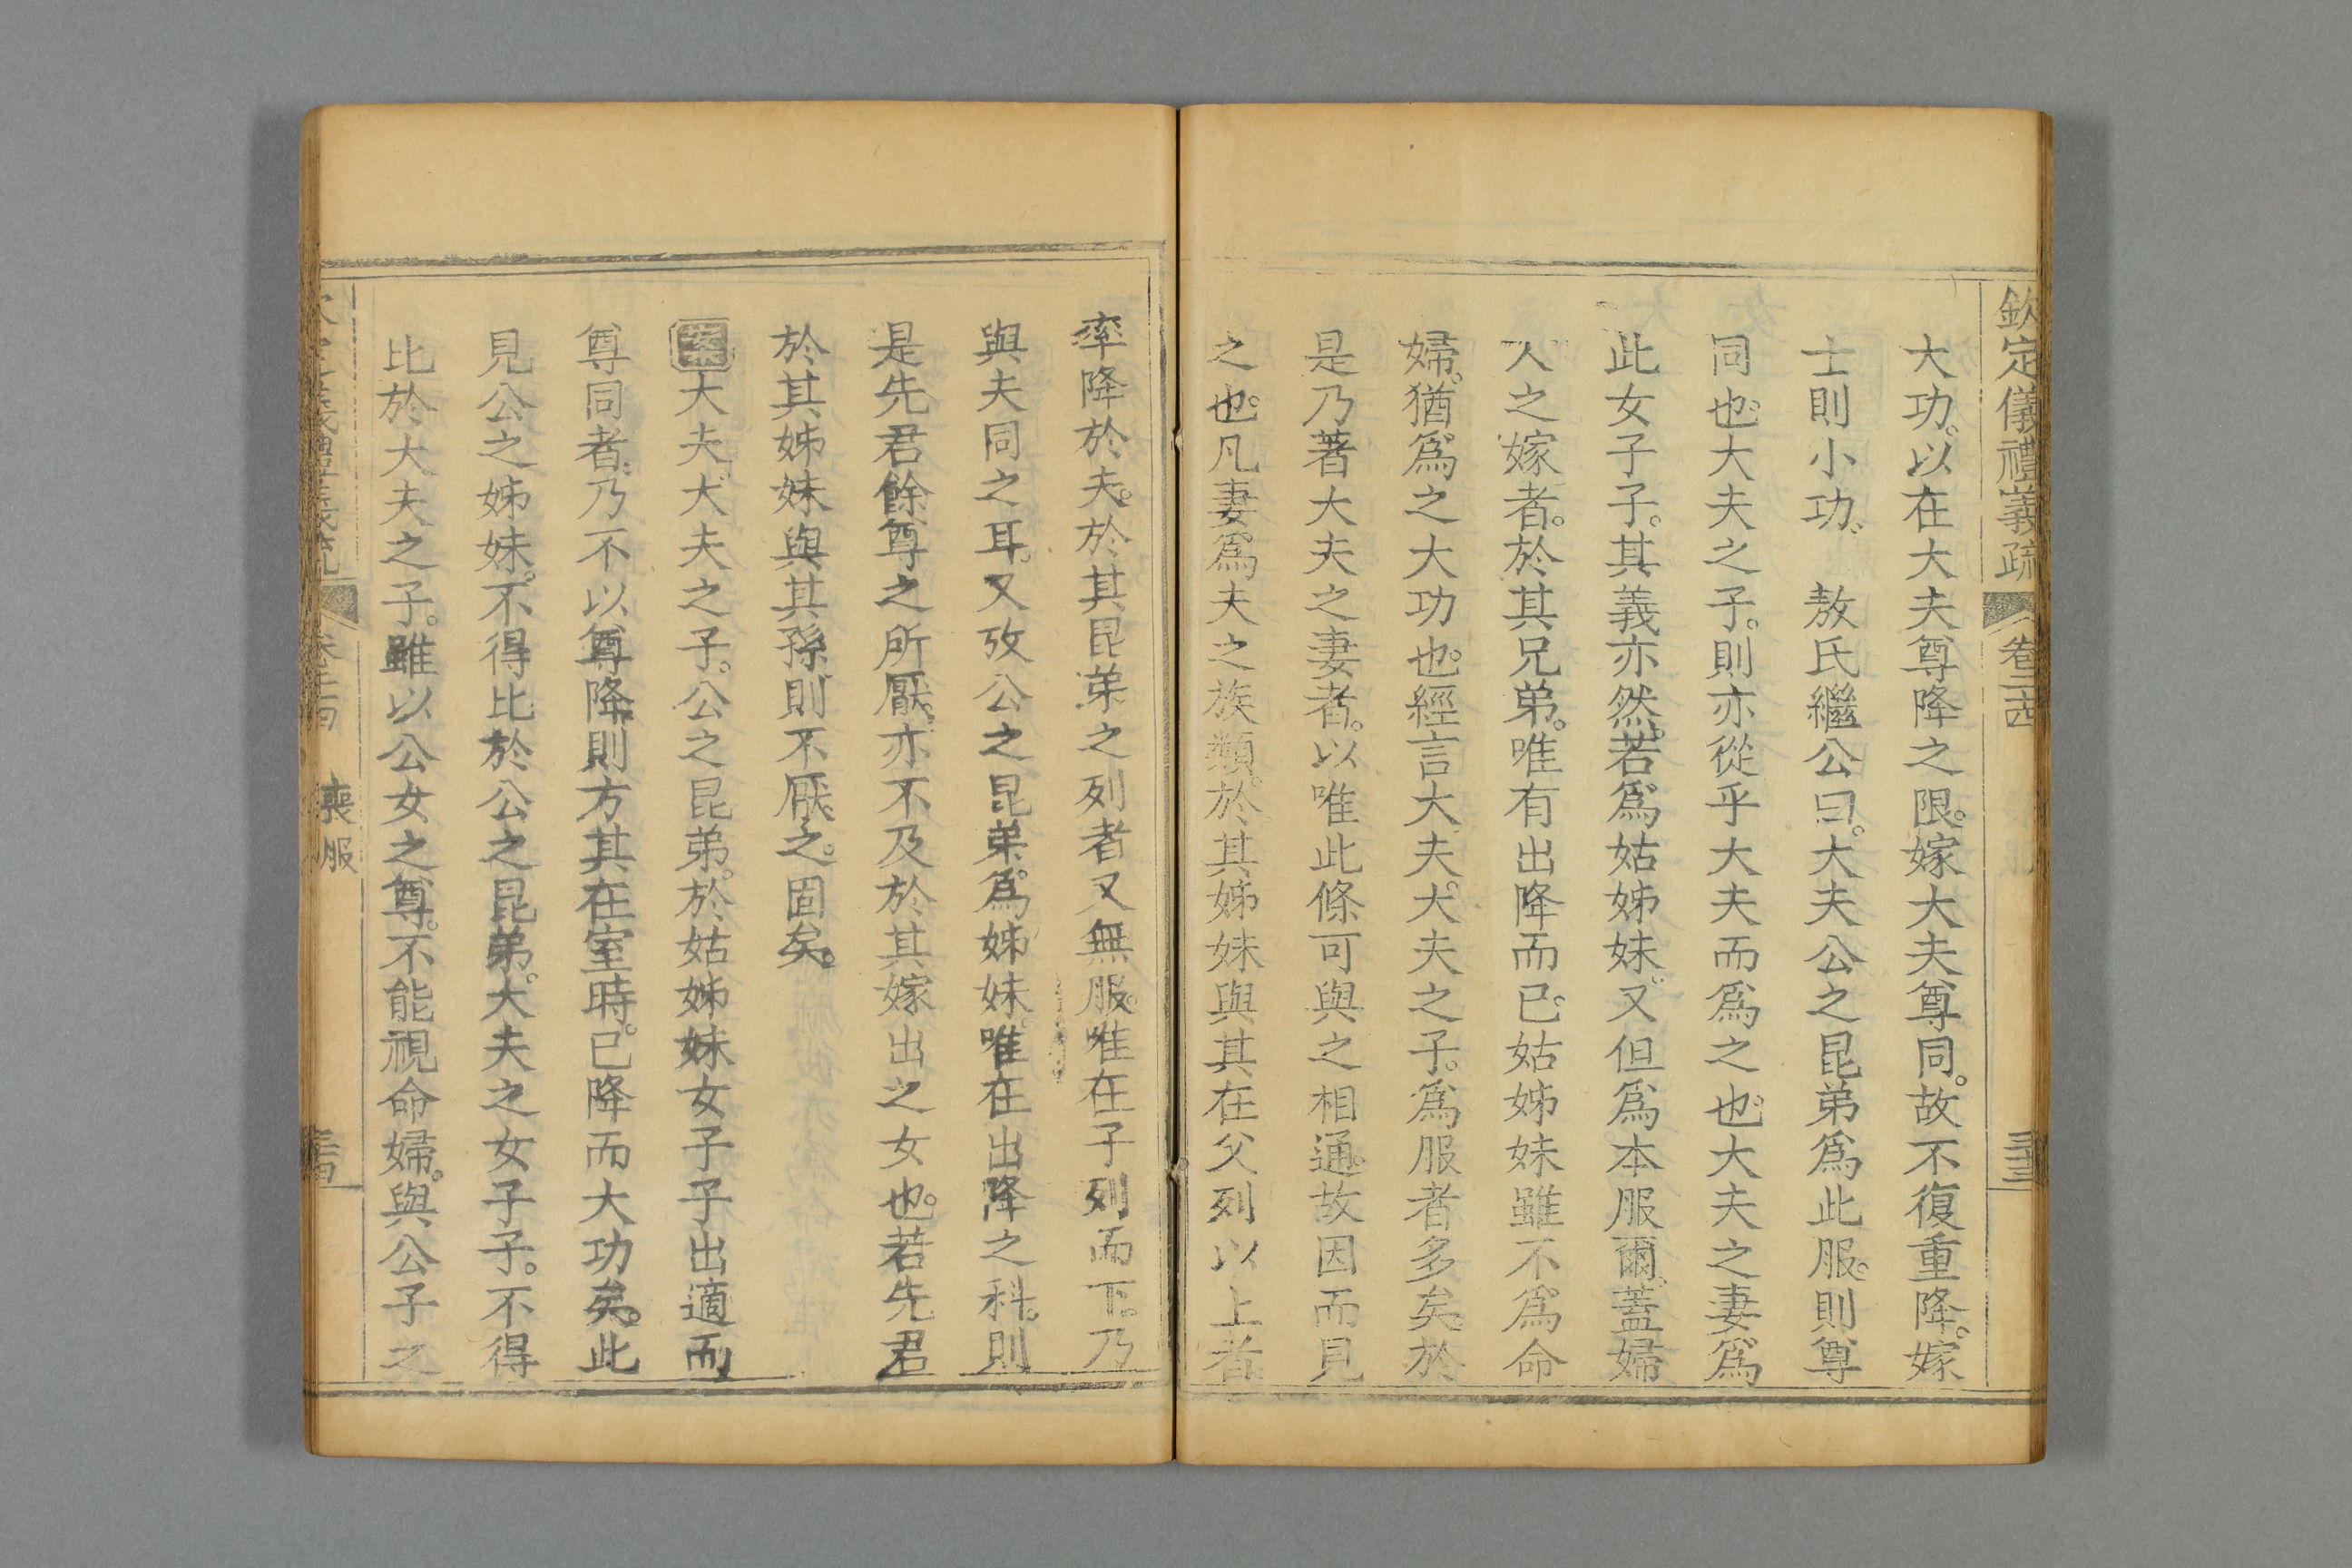 欽定儀禮義疏 卷二十四 三十三
大功。以在大夫尊降之限。嫁大夫尊同。故不復重降。嫁
士則小功。 敖氏繼公曰。大夫公之昆弟爲此服。則尊
同也。大夫之子。則亦從乎大夫而爲之也。大夫之妻爲
此女子子。其義亦然。若爲姑姊妹。又但爲本服爾。蓋婦
人之嫁者。於其兄弟。唯有出降而已。姑姊妹雖不爲命
婦。猶爲之大功也。經言大夫。大夫之子。爲服者多矣。於
是乃著大夫之妻者。以唯此條可與之相通。故因而見
之也。凡妻爲夫之族類。於其姊妹與其在父列以上者
率降於夫。於其昆弟之列者又無服。唯在子列而下。乃
與夫同之耳。又攷公之昆弟。爲姊妹。唯在出降之科。則
是先君餘尊之所厭。亦不及於其嫁出之女也。若先君
於其姊妹與其孫。則不厭之。固矣。
案大夫大夫之子。公之昆弟。於姑姊妹女子子出適而
尊同者。乃不以尊降。則方其在室時。已降而大功矣。此
見公之姊妹。不得比於公之昆弟。大夫之女子子。不得
比於大夫之子。雖以公女之尊。不能視命婦。與公子之
喪服